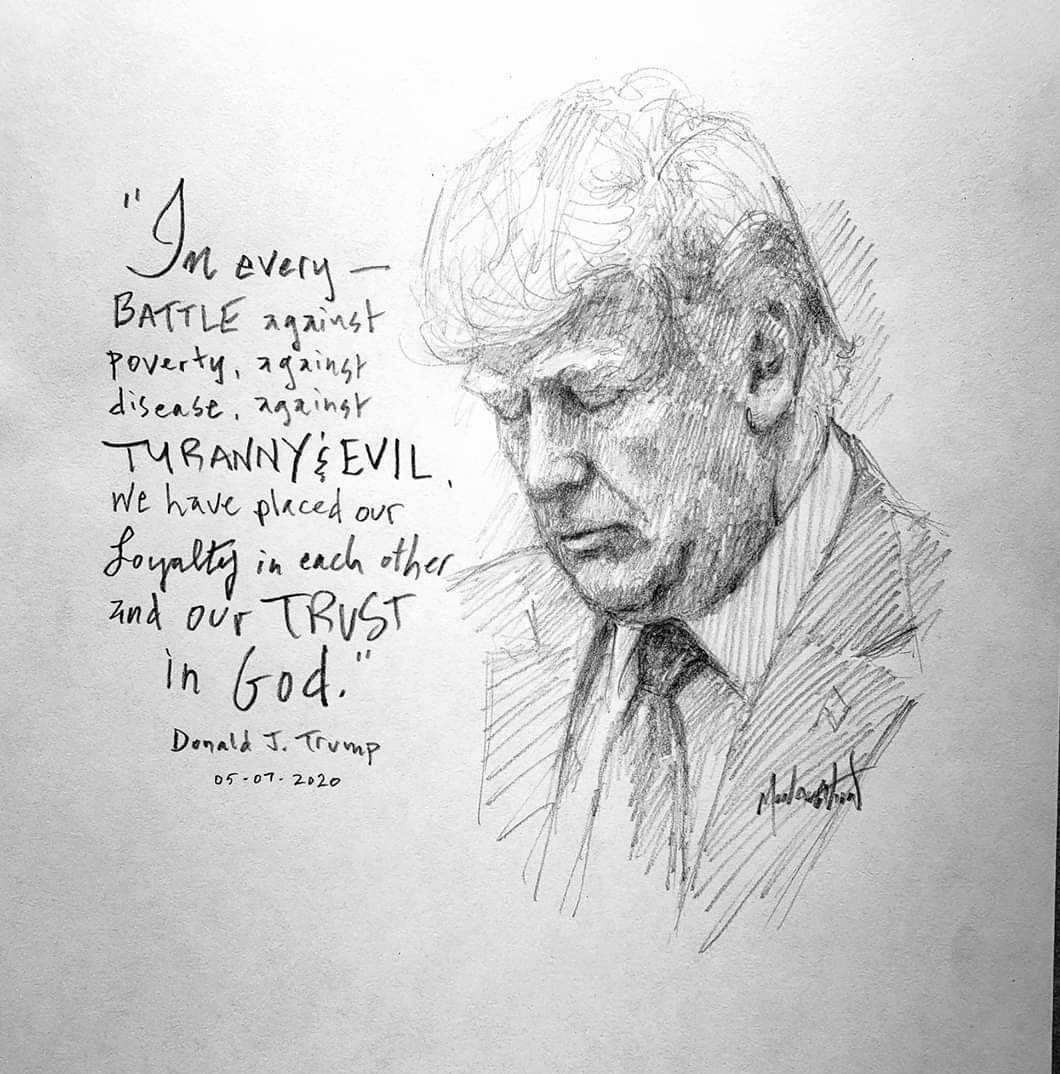 "In every —
BATTLE against
poverty, against
disease, against
TYRANNY & EVIL,
We have placed our
Loyalty in each other
and our TRUST
in God."
Donald J. Trump
05-07-2020